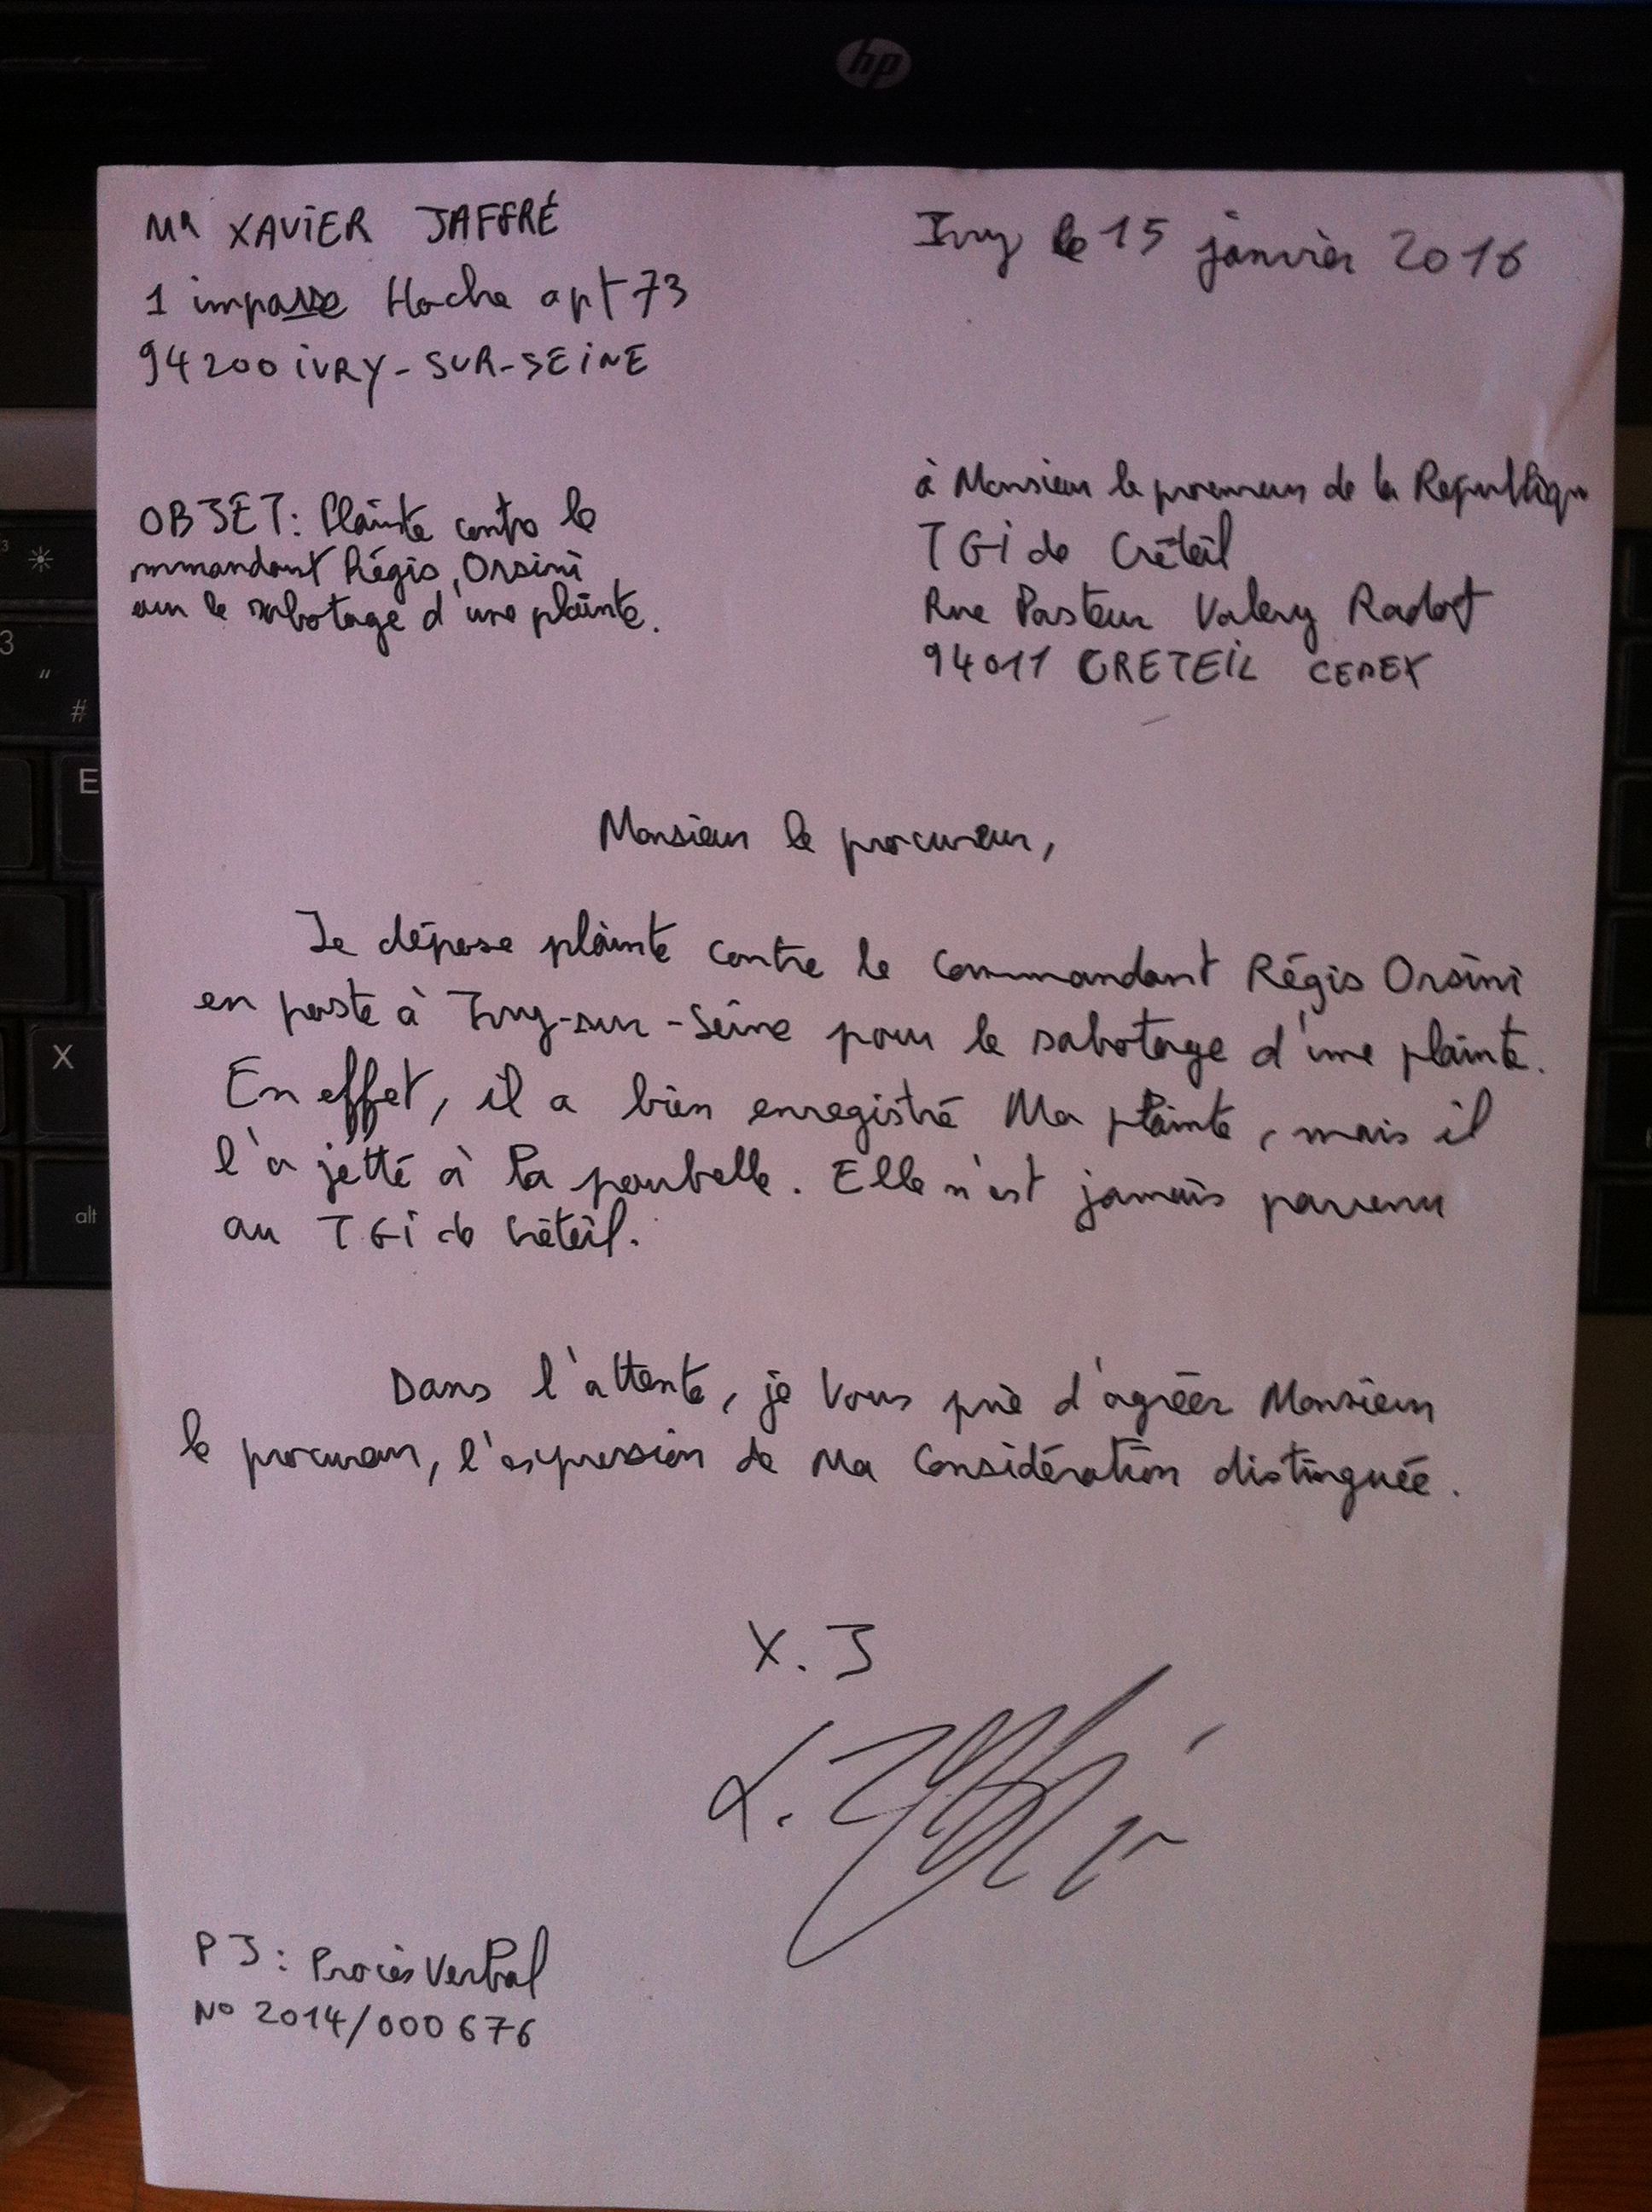 hp
Mr XAVIER JAFFRÉ
1 impasse Hoche apt 73
94200 IVRY-SUR-SEINE
Ivry le 15 janvier 2016
OBJET: Plainte contre le
mmandant Régis Orsini
our le sabotage d'une plainte.
à Monsieur le procureur de la Republique
TGI de Créteil
Rue Pasteur Valery Radot
94011 CRETEIL CEDEX
Monsieur le procureur,
Je dépose plainte contre le Commandant Régis Orsini
en poste à Ivry-sur-Seine pour le sabotage d'une plainte.
En effet, il a bien enregistré Ma plainte, mais il
l'a jetté à la poubelle. Elle n'est jamais parvenu
au TGI de Créteil.
Dans l'attente, je vous prie d'agréer Monsieur
le procureur, l'expression de Ma Considération distinguée.
X. J
PJ: Procès Verbal
No 2014/000676
3
"
#
E
X
alt